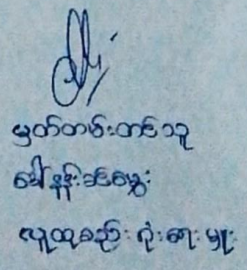 မှတ်တမ်းတင်သူ
ဒေါ်နန်းခင်မွှေး
လူထုစည်းရုံးရေးမှူး